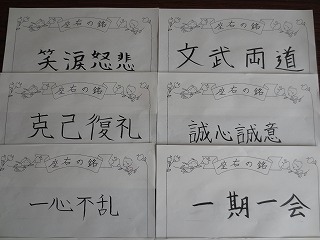 座右の銘
笑涙怒悲
座右の銘
文武両道
座右の銘
克己復礼
座右の銘
誠心誠意
座右の銘
一心不乱
座右の銘
一期一会